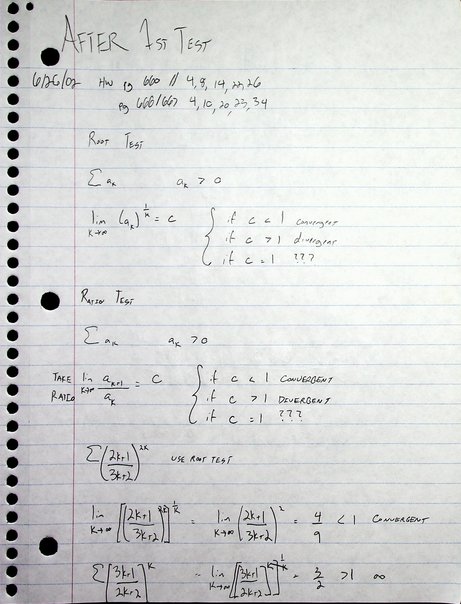 AFTER 1ST TEST
6/26/02 HW pg 660 // 4, 8, 14, 22, 26
pg 666/667 4, 10, 20, 23, 34
ROOT TEST
∑ aₖ aₖ > 0
lim K→∞ (aₖ)^(1/K) = C { if C < 1 convergent
if C > 1 divergent
if C = 1 ???
RATIO TEST
∑ aₖ aₖ > 0
TAKE RATIO lim K→∞ aₖ₊₁/aₖ = C { if C < 1 CONVERGENT
if C > 1 DIVERGENT
if C = 1 ???
∑ ((2K+1)/(3K+2))^(2K) USE ROOT TEST
lim K→∞ [((2K+1)/(3K+2))^(2K)]^(1/K) = lim K→∞ ((2K+1)/(3K+2))^2 = 4/9 < 1 CONVERGENT
∑ [(3K+1)/(2K+2)]^K - lim K→∞ [[(3K+1)/(2K+2)]^K]^(1/K) = 3/2 > 1 ∞